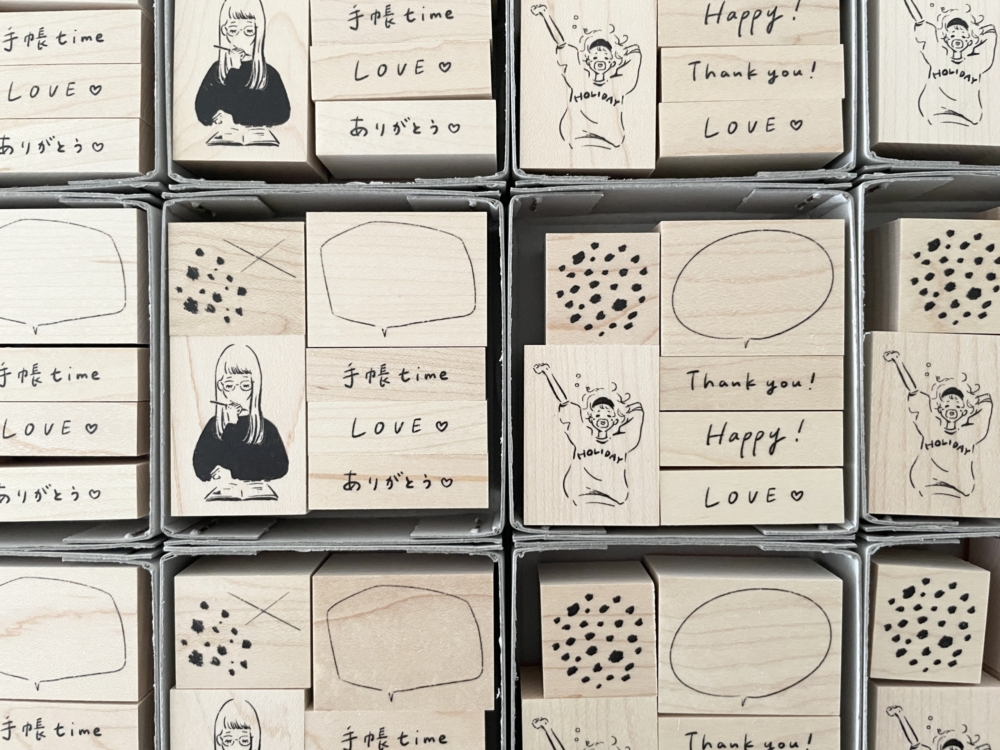 手帳time
LOVE♡
ありがとう♡
手帳time
LOVE♡
ありがとう♡
HOLIDAY
Happy!
Thank you!
LOVE♡
HOLIDAY
手帳time
LOVE♡
ありがとう♡
手帳time
LOVE♡
ありがとう♡
HOLIDAY
Thank you!
Happy!
LOVE♡
HOLIDAY
手帳time
手帳time
Thank you!